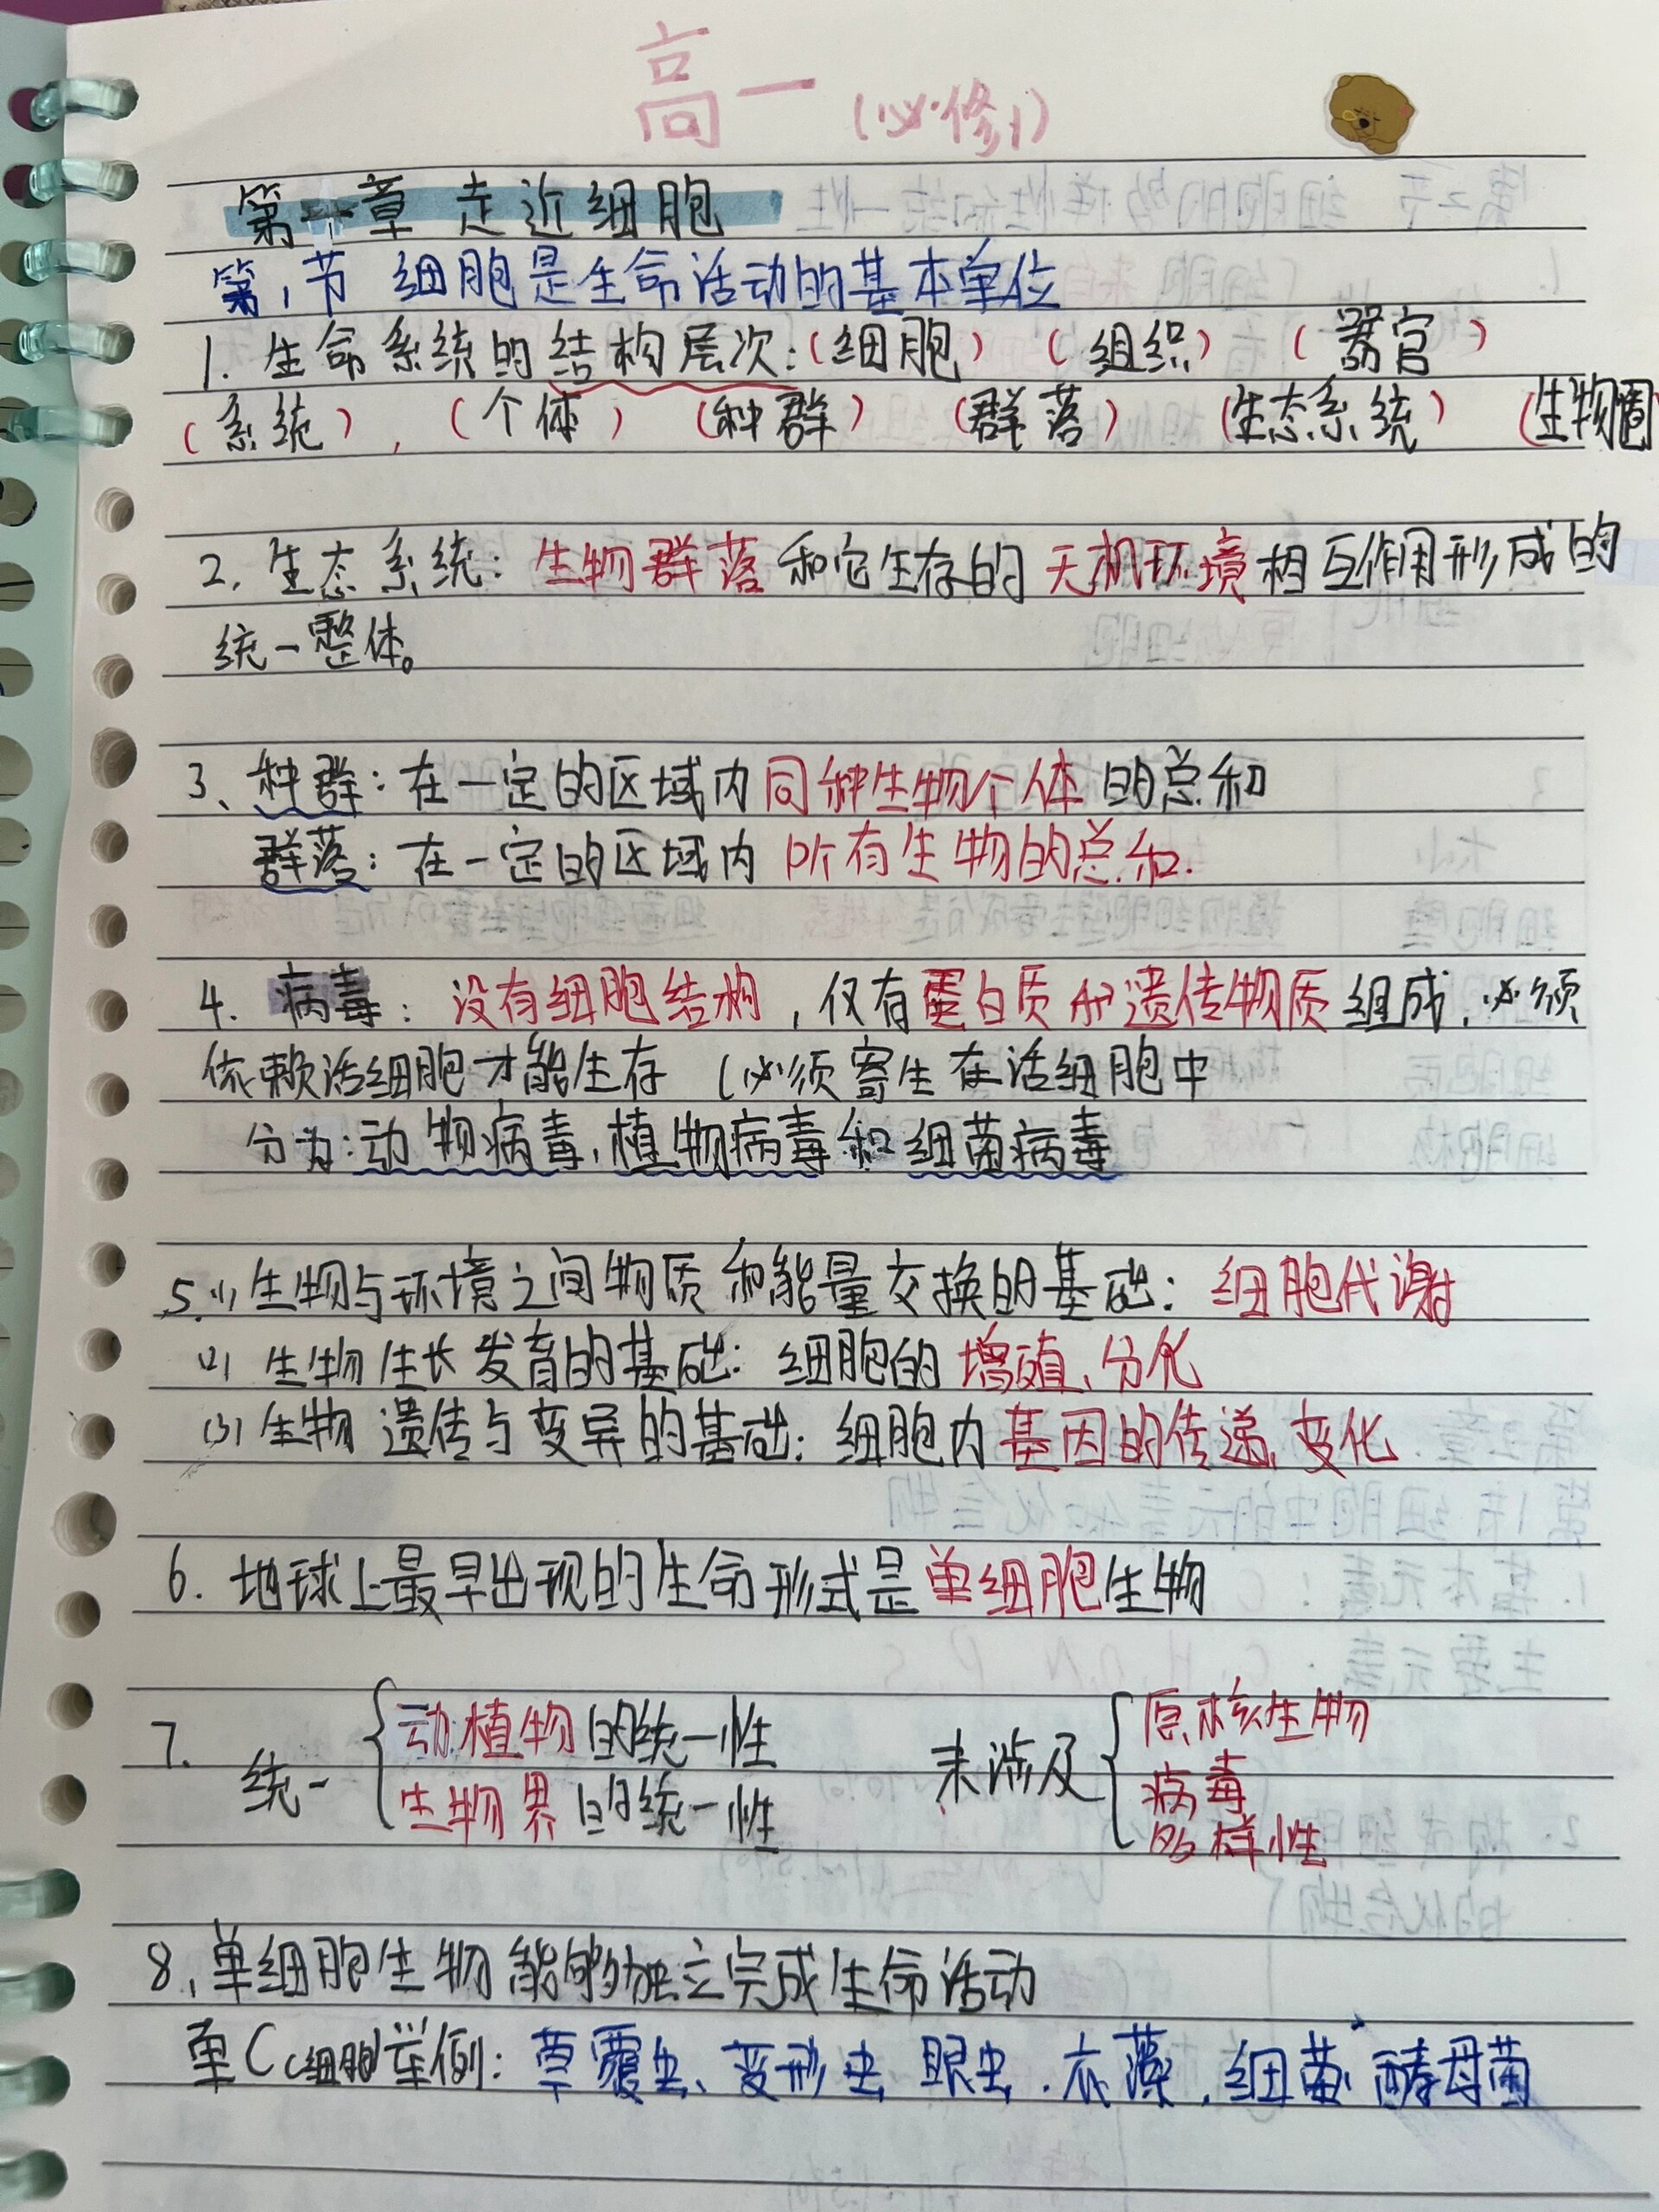 高一(必修1)
第一章 走近细胞
第1节 细胞是生命活动的基本单位
1. 生命系统的结构层次:(细胞) (组织) (器官)
(系统), (个体) (种群) (群落) (生态系统) (生物圈
2. 生态系统:生物群落和它生存的无机环境相互作用形成的
统一整体。
3、种群:在一定的区域内同种生物个体的总和
群落:在一定的区域内所有生物的总和.
4. 病毒:没有细胞结构,仅有蛋白质和遗传物质组成,必须
依赖活细胞才能生存 (必须寄生在活细胞中
分为:动物病毒,植物病毒和细菌病毒
5.(1)生物与环境之间物质和能量交换的基础:细胞代谢
(2) 生物生长发育的基础:细胞的增殖、分化
(3) 生物遗传与变异的基础:细胞内基因的传递,变化
6. 地球上最早出现的生命形式是单细胞生物
7. 统一{动植物的统一性 未涉及{原核生物
生物界的统一性 病毒
多样性
8、单细胞生物能够独立完成生命活动
单C(细胞)举例:草履虫、变形虫 眼虫.衣藻,细菌、酵母菌